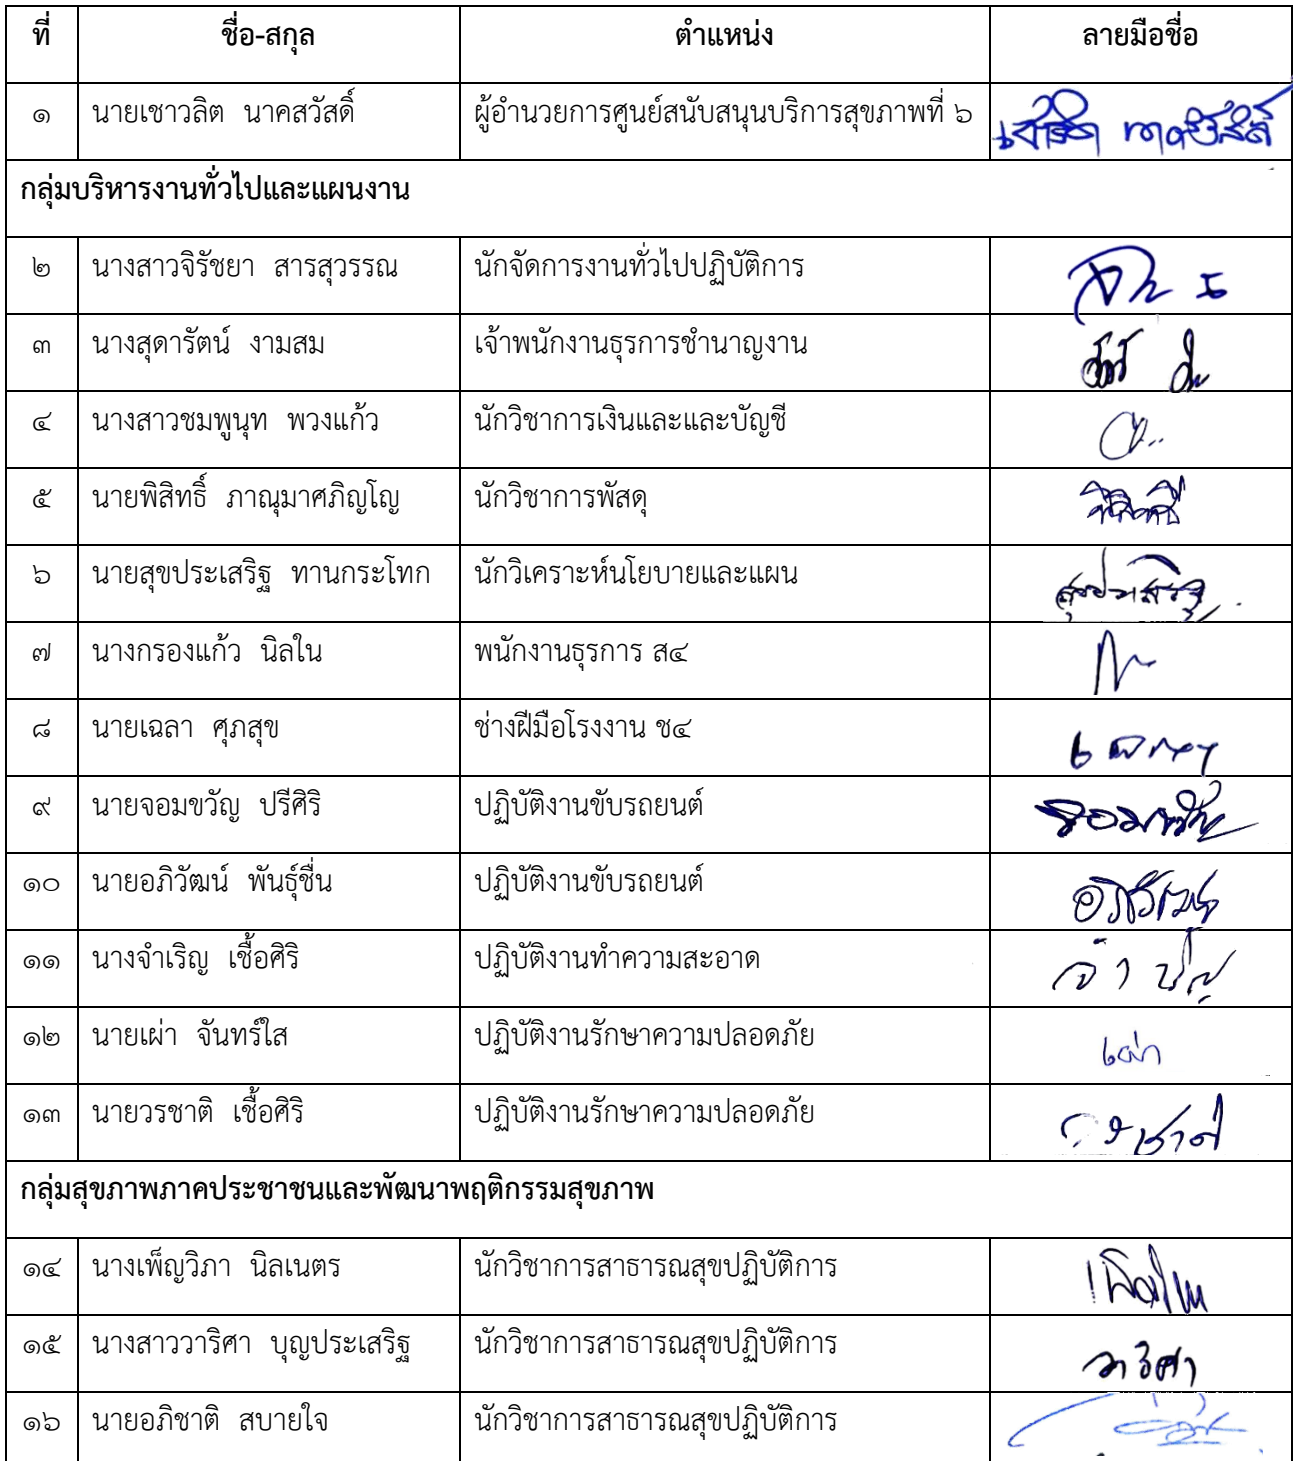 ที่ ชื่อ-สกุล ตำแหน่ง ลายมือชื่อ
๑ นายเชาวลิต นาคสวัสดิ์ ผู้อำนวยการศูนย์สนับสนุนบริการสุขภาพที่ ๖
กลุ่มบริหารงานทั่วไปและแผนงาน
๒ นางสาวจิรัชยา สารสุวรรณ นักจัดการงานทั่วไปปฏิบัติการ
๓ นางสุดารัตน์ งามสม เจ้าพนักงานธุรการชำนาญงาน
๔ นางสาวชมพูนุท พวงแก้ว นักวิชาการเงินและและบัญชี
๕ นายพิสิทธิ์ ภาณุมาศภิญโญ นักวิชาการพัสดุ
๖ นายสุขประเสริฐ ทานกระโทก นักวิเคราะห์นโยบายและแผน สุขประเสริฐ
๗ นางกรองแก้ว นิลใน พนักงานธุรการ ส๔
๘ นายเฉลา ศุภสุข ช่างฝีมือโรงงาน ช๔
๙ นายจอมขวัญ ปรีศิริ ปฏิบัติงานขับรถยนต์ จอมขวัญ
๑๐ นายอภิวัฒน์ พันธุ์ชื่น ปฏิบัติงานขับรถยนต์ อภิวัฒน์
๑๑ นางจำเริญ เชื้อศิริ ปฏิบัติงานทำความสะอาด
๑๒ นายเผ่า จันทร์ใส ปฏิบัติงานรักษาความปลอดภัย เผ่า
๑๓ นายวรชาติ เชื้อศิริ ปฏิบัติงานรักษาความปลอดภัย วรชาติ
กลุ่มสุขภาพภาคประชาชนและพัฒนาพฤติกรรมสุขภาพ
๑๔ นางเพ็ญวิภา นิลเนตร นักวิชาการสาธารณสุขปฏิบัติการ
๑๕ นางสาววาริศา บุญประเสริฐ นักวิชาการสาธารณสุขปฏิบัติการ วาริศา
๑๖ นายอภิชาติ สบายใจ นักวิชาการสาธารณสุขปฏิบัติการ